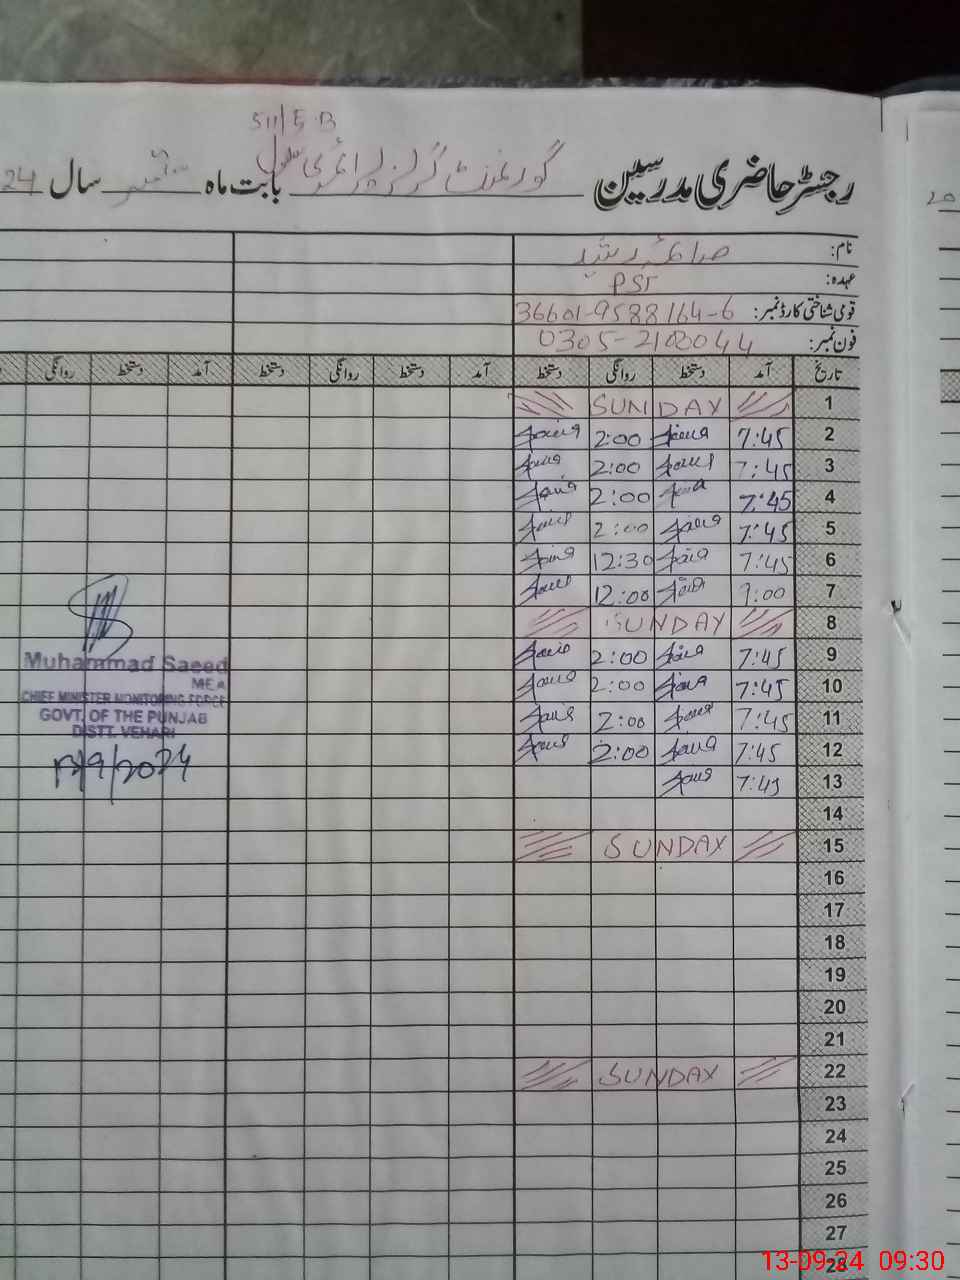 511/E.B
رجسٹر حاضری مدرسین گورنمنٹ گرلز پرائمری سکول بابت ماہ ستمبر سال 24
20
نام: صائمہ رشید
عہدہ: PST
قومی شناختی کارڈ نمبر: 36601-9588164-6
فون نمبر: 0305-2100044
تاریخ آمد دستخط روانگی دستخط آمد دستخط روانگی دستخط آمد دستخط روانگی
1 SUNDAY
2 7:45 2:00
3 7:45 2:00
4 7:45 2:00
5 7:45 2:00
6 7:45 12:30
7 9:00 12:00
8 SUNDAY
9 7:45 2:00
10 7:45 2:00
11 7:45 2:00
12 7:45 2:00
13 7:45
14
15 SUNDAY
16
17
18
19
20
21
22 SUNDAY
23
24
25
26
27
28
Muhammad Saeed
MEA
CHIEF MINISTER MONITORING FORCE
GOVT. OF THE PUNJAB
DISTT. VEHARI
13/9/2024
13-09-24 09:30